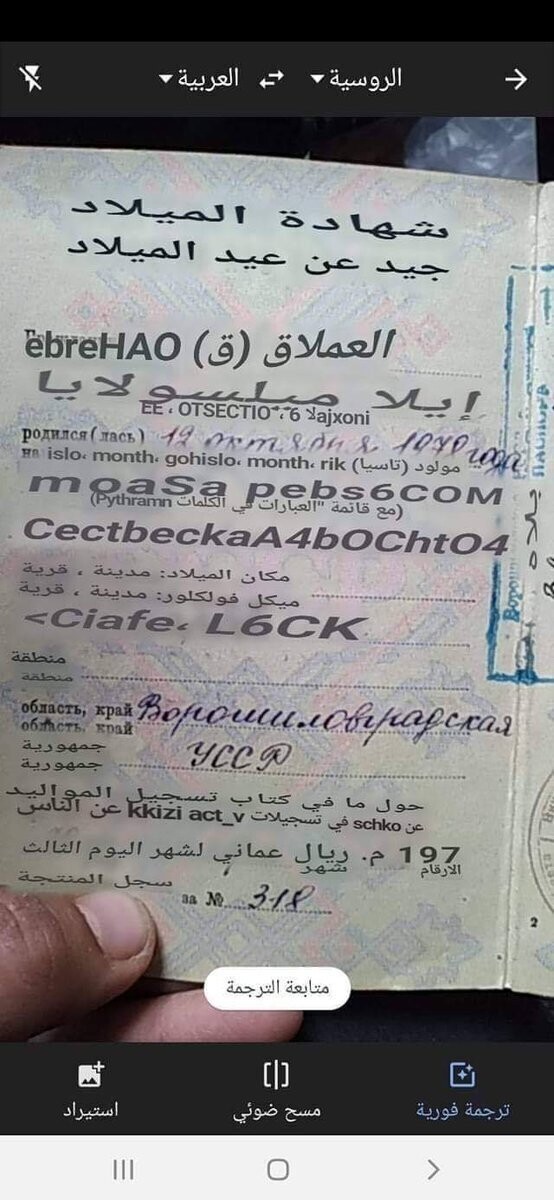 العربية الروسية
شهادة الميلاد
جيد عن عيد الميلاد
العملاق (ق) ebreHAO
إيلا ميلسولايا
родился(лась) 12 октября 1970 года
на islo، month، gohislo، month، rik (تاسيا) مولود
moaSa pebs6COM
(مع قائمة "العبارات في الكلمات Pythramn)
CectbeckaA4bOChtO4
مكان الميلاد: مدينة ، قرية
ميكل فولكلور: مدينة ، قرية
<Ciafe، L6CK
منطقة
منطقة
область, край Ворошиловградская
область, край
جمهورية
УССР
جمهورية
حول ما في كتاب تسجيل المواليد
عن schko في تسجيلات kkizi act_v عن الناس
197 م. ريال عماني لشهر اليوم الثالث
الارقام شهر
سجل المنتجة
за № 318
2
متابعة الترجمة
استيراد
مسح ضوئي
ترجمة فورية